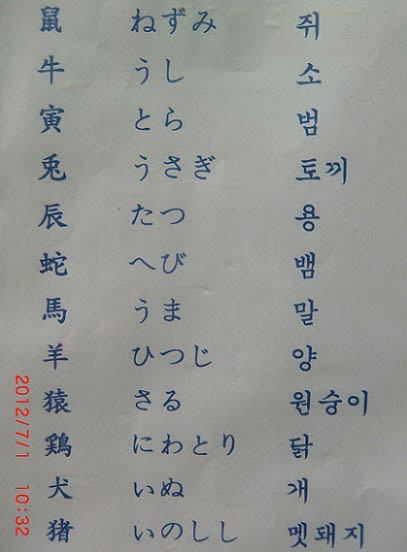 鼠 ねずみ 쥐
牛 うし 소
寅 とら 범
兎 うさぎ 토끼
辰 たつ 용
蛇 へび 뱀
馬 うま 말
羊 ひつじ 양
猿 さる 원숭이
鶏 にわとり 닭
犬 いぬ 개
猪 いのしし 멧돼지
2012/7/1 10:32